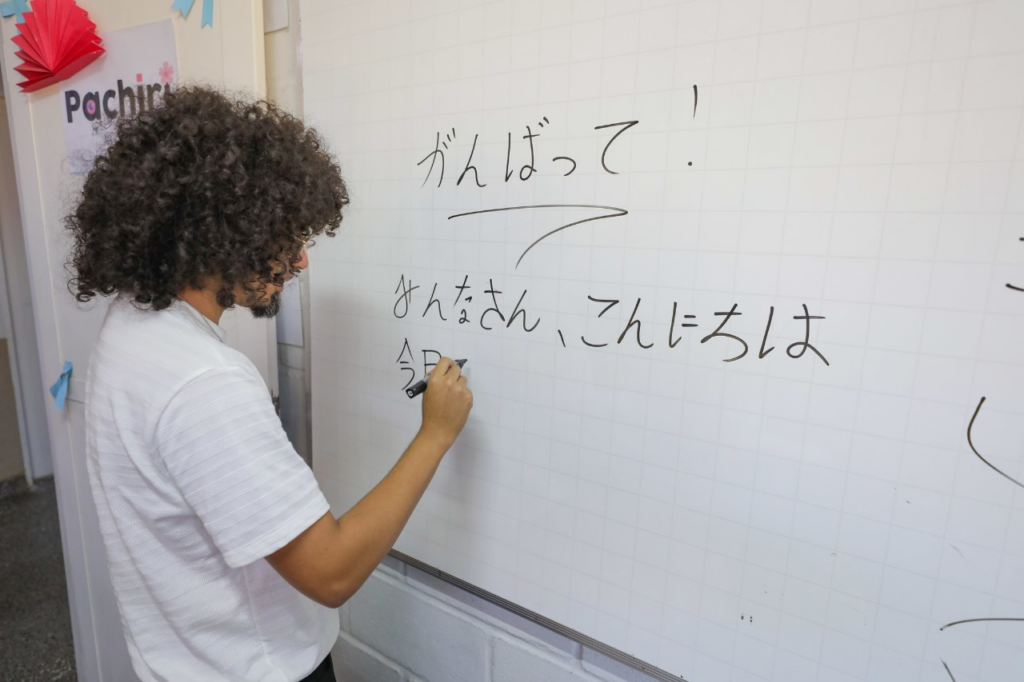 がんばって!
みんなさん、こんにちは
今日